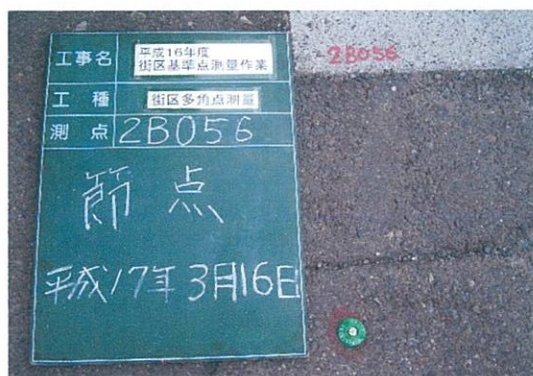 工事名 平成16年度
街区基準点測量作業
工種 街区多角点測量
測点 2B056
節点
平成17年3月16日
2B056